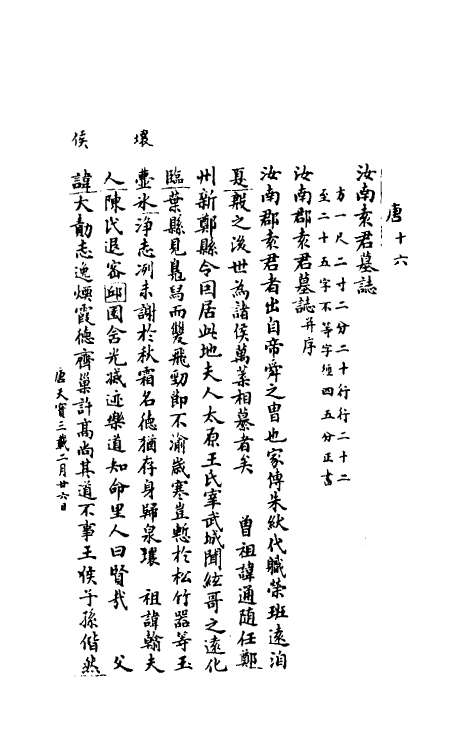 唐十六
汝南袁君墓誌
方一尺二寸二分二十行行二十二
至二十五字不等字徑四五分正書
汝南郡袁君墓誌并序
汝南郡袁君者出自帝舜之胄也家傳朱紱代職榮班遠洎
夏殷之後世為諸侯萬葉相墓者矣　曾祖諱通随任鄭
州新鄭縣令因居此地夫人太原王氏宰武城聞絃哥之遠化
臨葉縣見鳧舄而雙飛勁節不渝歲寒豈慙於松竹器等玉
壺水浄志冽未謝於秋霜名德猶存身歸泉瓌　祖諱翰夫
壞
人陳氏退容邱園含光藏迹樂道知命里人曰賢哉　父
諱大勣志逸煙霞德齊巢許髙尚其道不事王㑨子孫偕然
侯
唐天寳三載二月廿六日